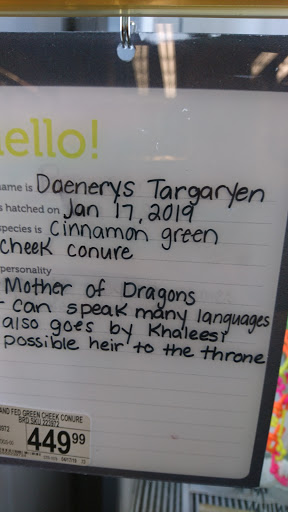 ello!
ame is Daenerys Targaryen
s hatched on Jan 17, 2019
species is Cinnamon green
cheek conure
personality
Mother of Dragons
- can speak many languages
also goes by Khaleesi
possible heir to the throne
AND FED GREEN CHEEK CONURE
BRD SKU 223972
449.99